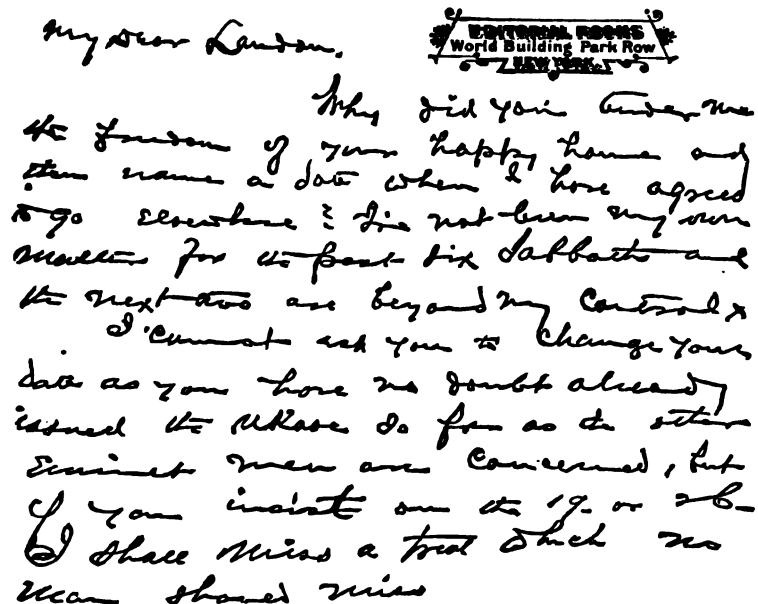 My Dear Landon.
EDITORIAL ROOMS
World Building Park Row
NEW YORK.
Why did you tender me
the freedom of your happy home and
then name a date when I have agreed
to go elsewhere? I've not been my own
master for the past six Sabbaths and
the next two are beyond my control x
I cannot ask you to change your
date as you have no doubt already
issued the ukase so far as the other
eminent men are concerned, but
if you insist on the 19 or 26
I shall miss a treat which no
man should miss